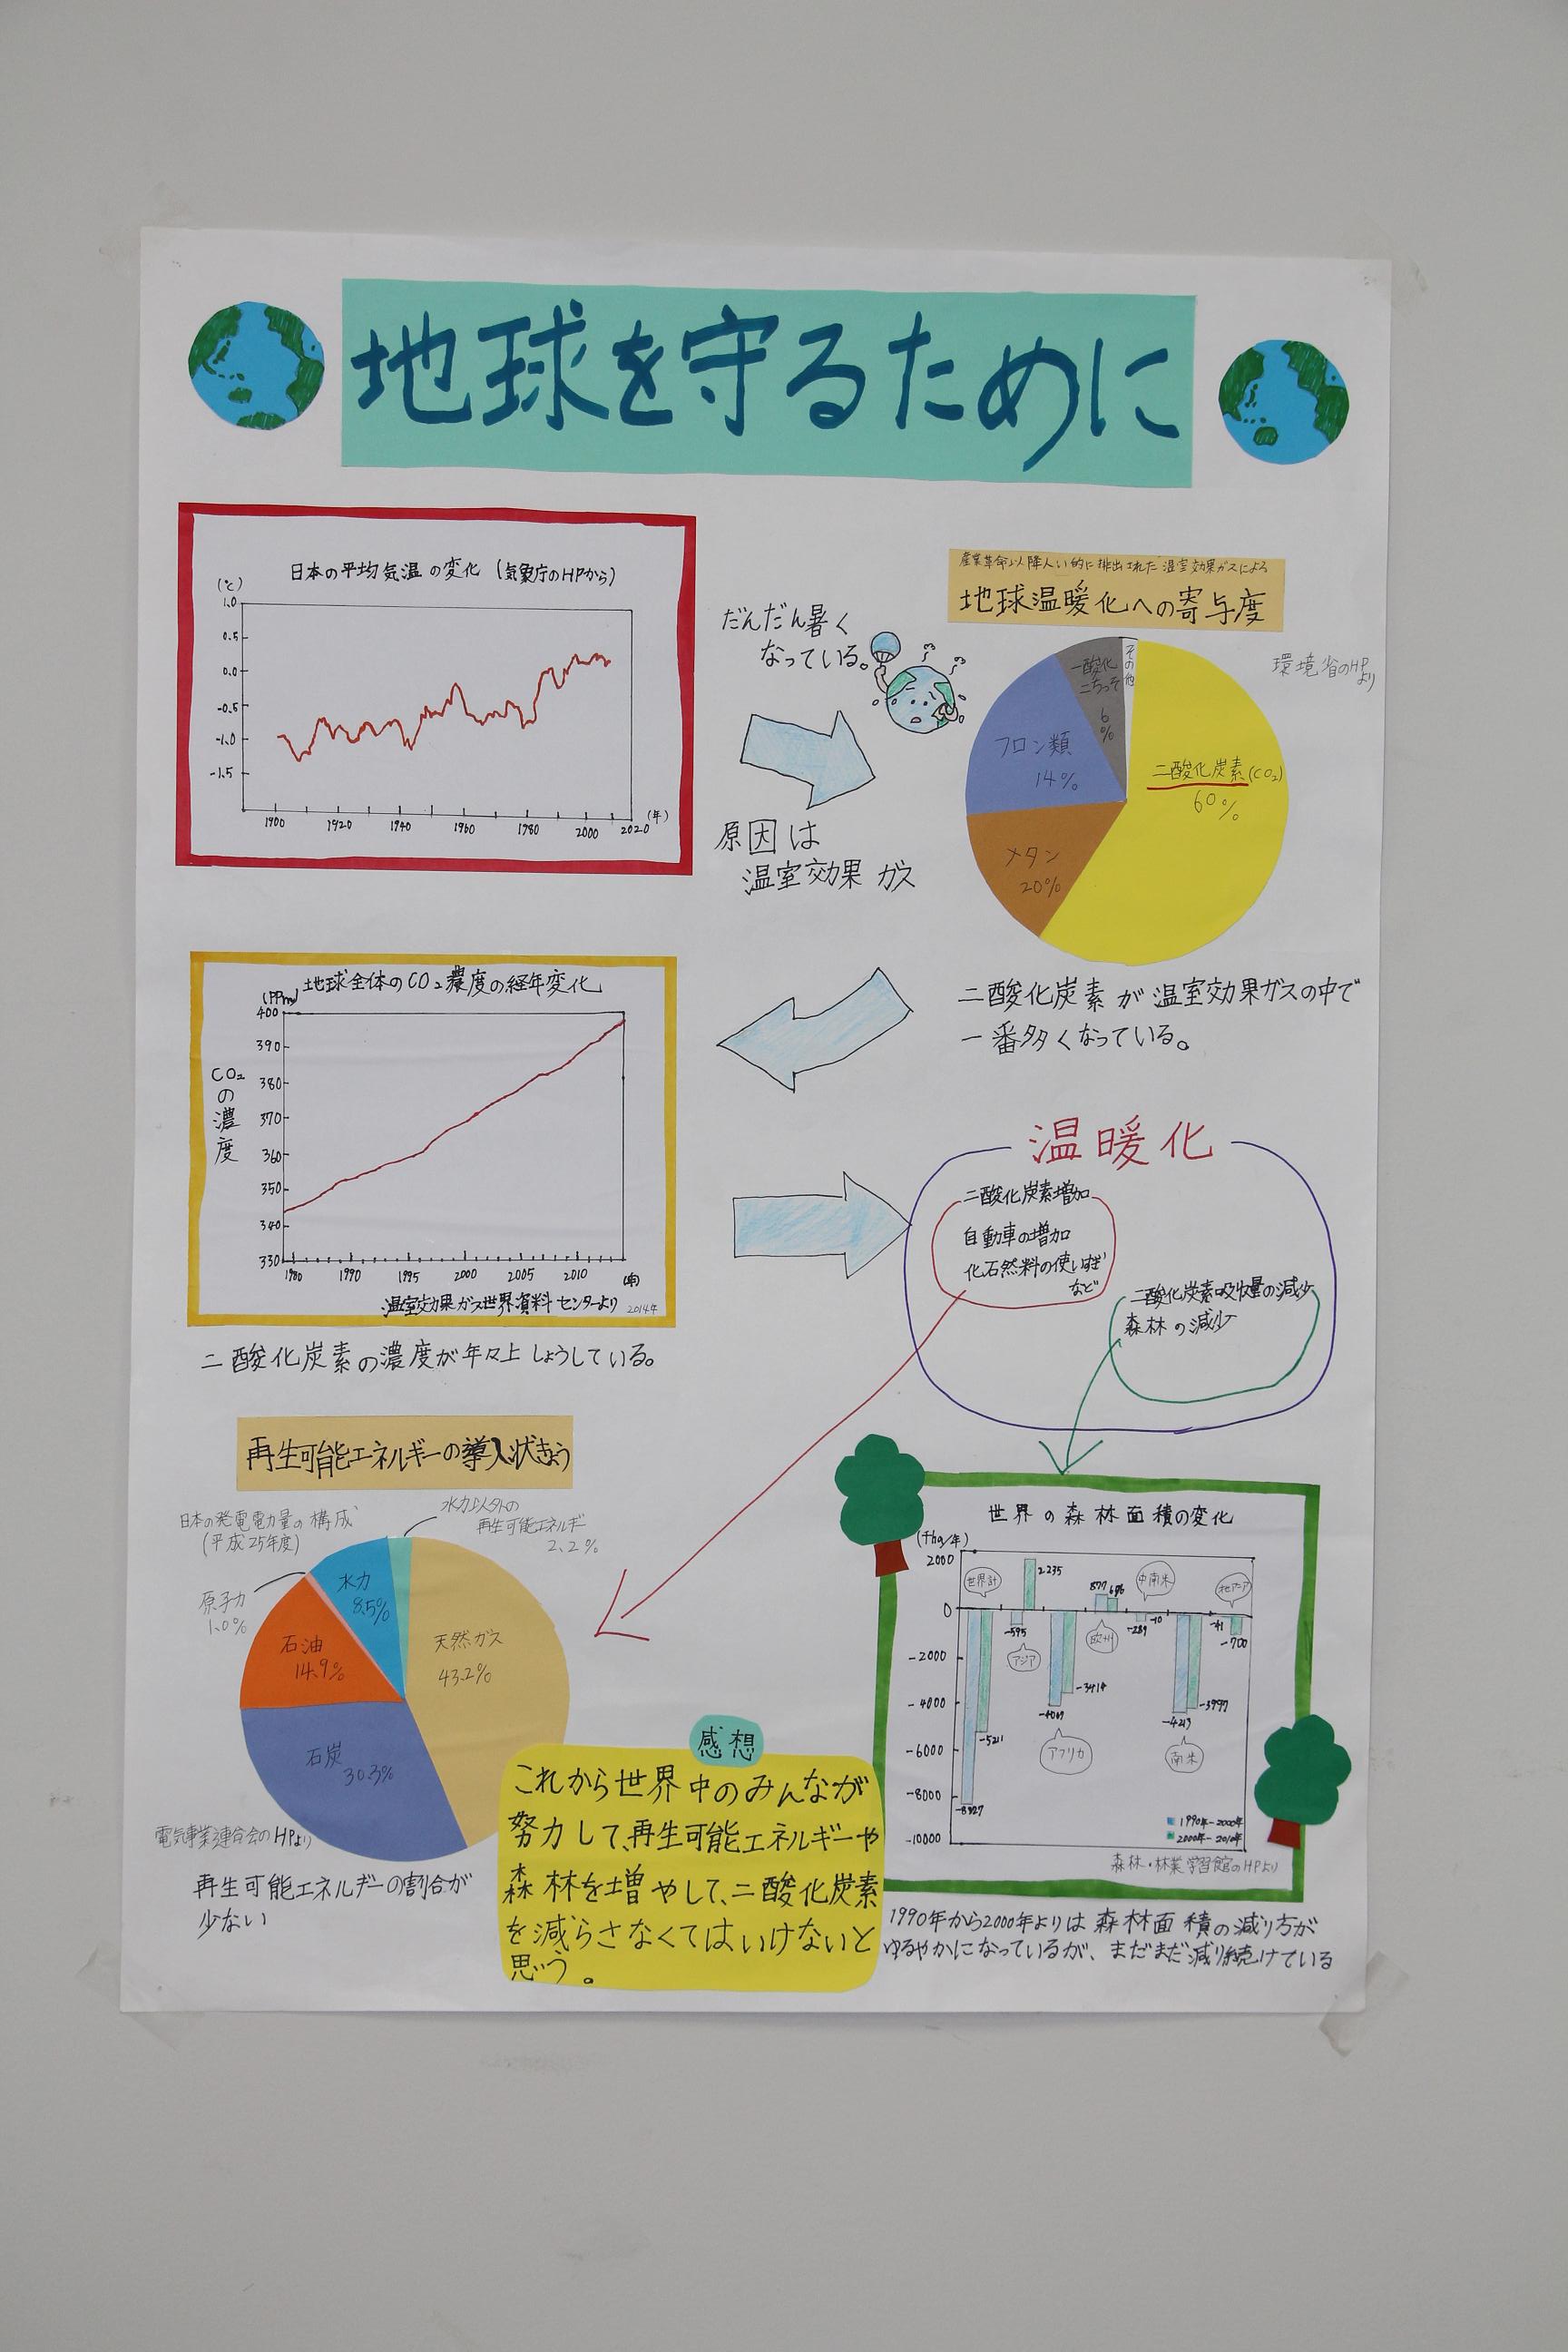 地球を守るために
日本の平均気温の変化 (気象庁のHPから)
(℃)
1.0
0.5
0.0
-0.5
-1.0
-1.5
1900 1920 1940 1960 1980 2000 2020 (年)
だんだん暑く
なっている。
原因は
温室効果ガス
地球温暖化への寄与度
環境省のHP
より
その他
一酸化
二ちっそ
6
%
フロン類
14%
メタン
20%
二酸化炭素(CO₂)
60%
二酸化炭素が温室効果ガスの中で
一番多くなっている。
地球全体のCO₂濃度の経年変化
(PPm)
400
390
380
370
360
350
340
330
CO₂
の
濃
度
1980 1990 1995 2000 2005 2010 (年)
温室効果ガス世界資料センターより 2014年
二酸化炭素の濃度が年々上しょうしている。
温暖化
二酸化炭素増加
自動車の増加
化石燃料の使いすぎ
など
二酸化炭素吸収量の減少
森林の減少
再生可能エネルギーの導入状きょう
日本の発電電力量の構成
(平成25年度)
水力以外の
再生可能エネルギー
2.2%
原子力
1.0%
水力
8.5%
石油
14.9%
天然ガス
43.2%
石炭
30.3%
電気事業連合会のHPより
再生可能エネルギーの割合が
少ない
感想
これから世界中のみんなが
努力して、再生可能エネルギーや
森林を増やして、二酸化炭素
を減らさなくてはいけないと
思う。
世界の森林面積の変化
(千ha/年)
2000
0
-2000
-4000
-6000
-8000
-10000
世界計
-8327
-5211
アジア
-595
2235
アフリカ
-3414
欧州
877
676
中南米
-289
-10
南米
-4213
-3997
北アジア
-41
-700
1990年-2000年
2000年-2010年
森林・林業学習館のHPより
1990年から2000年よりは森林面積の減り方が
ゆるやかになっているが、まだまだ減り続けている